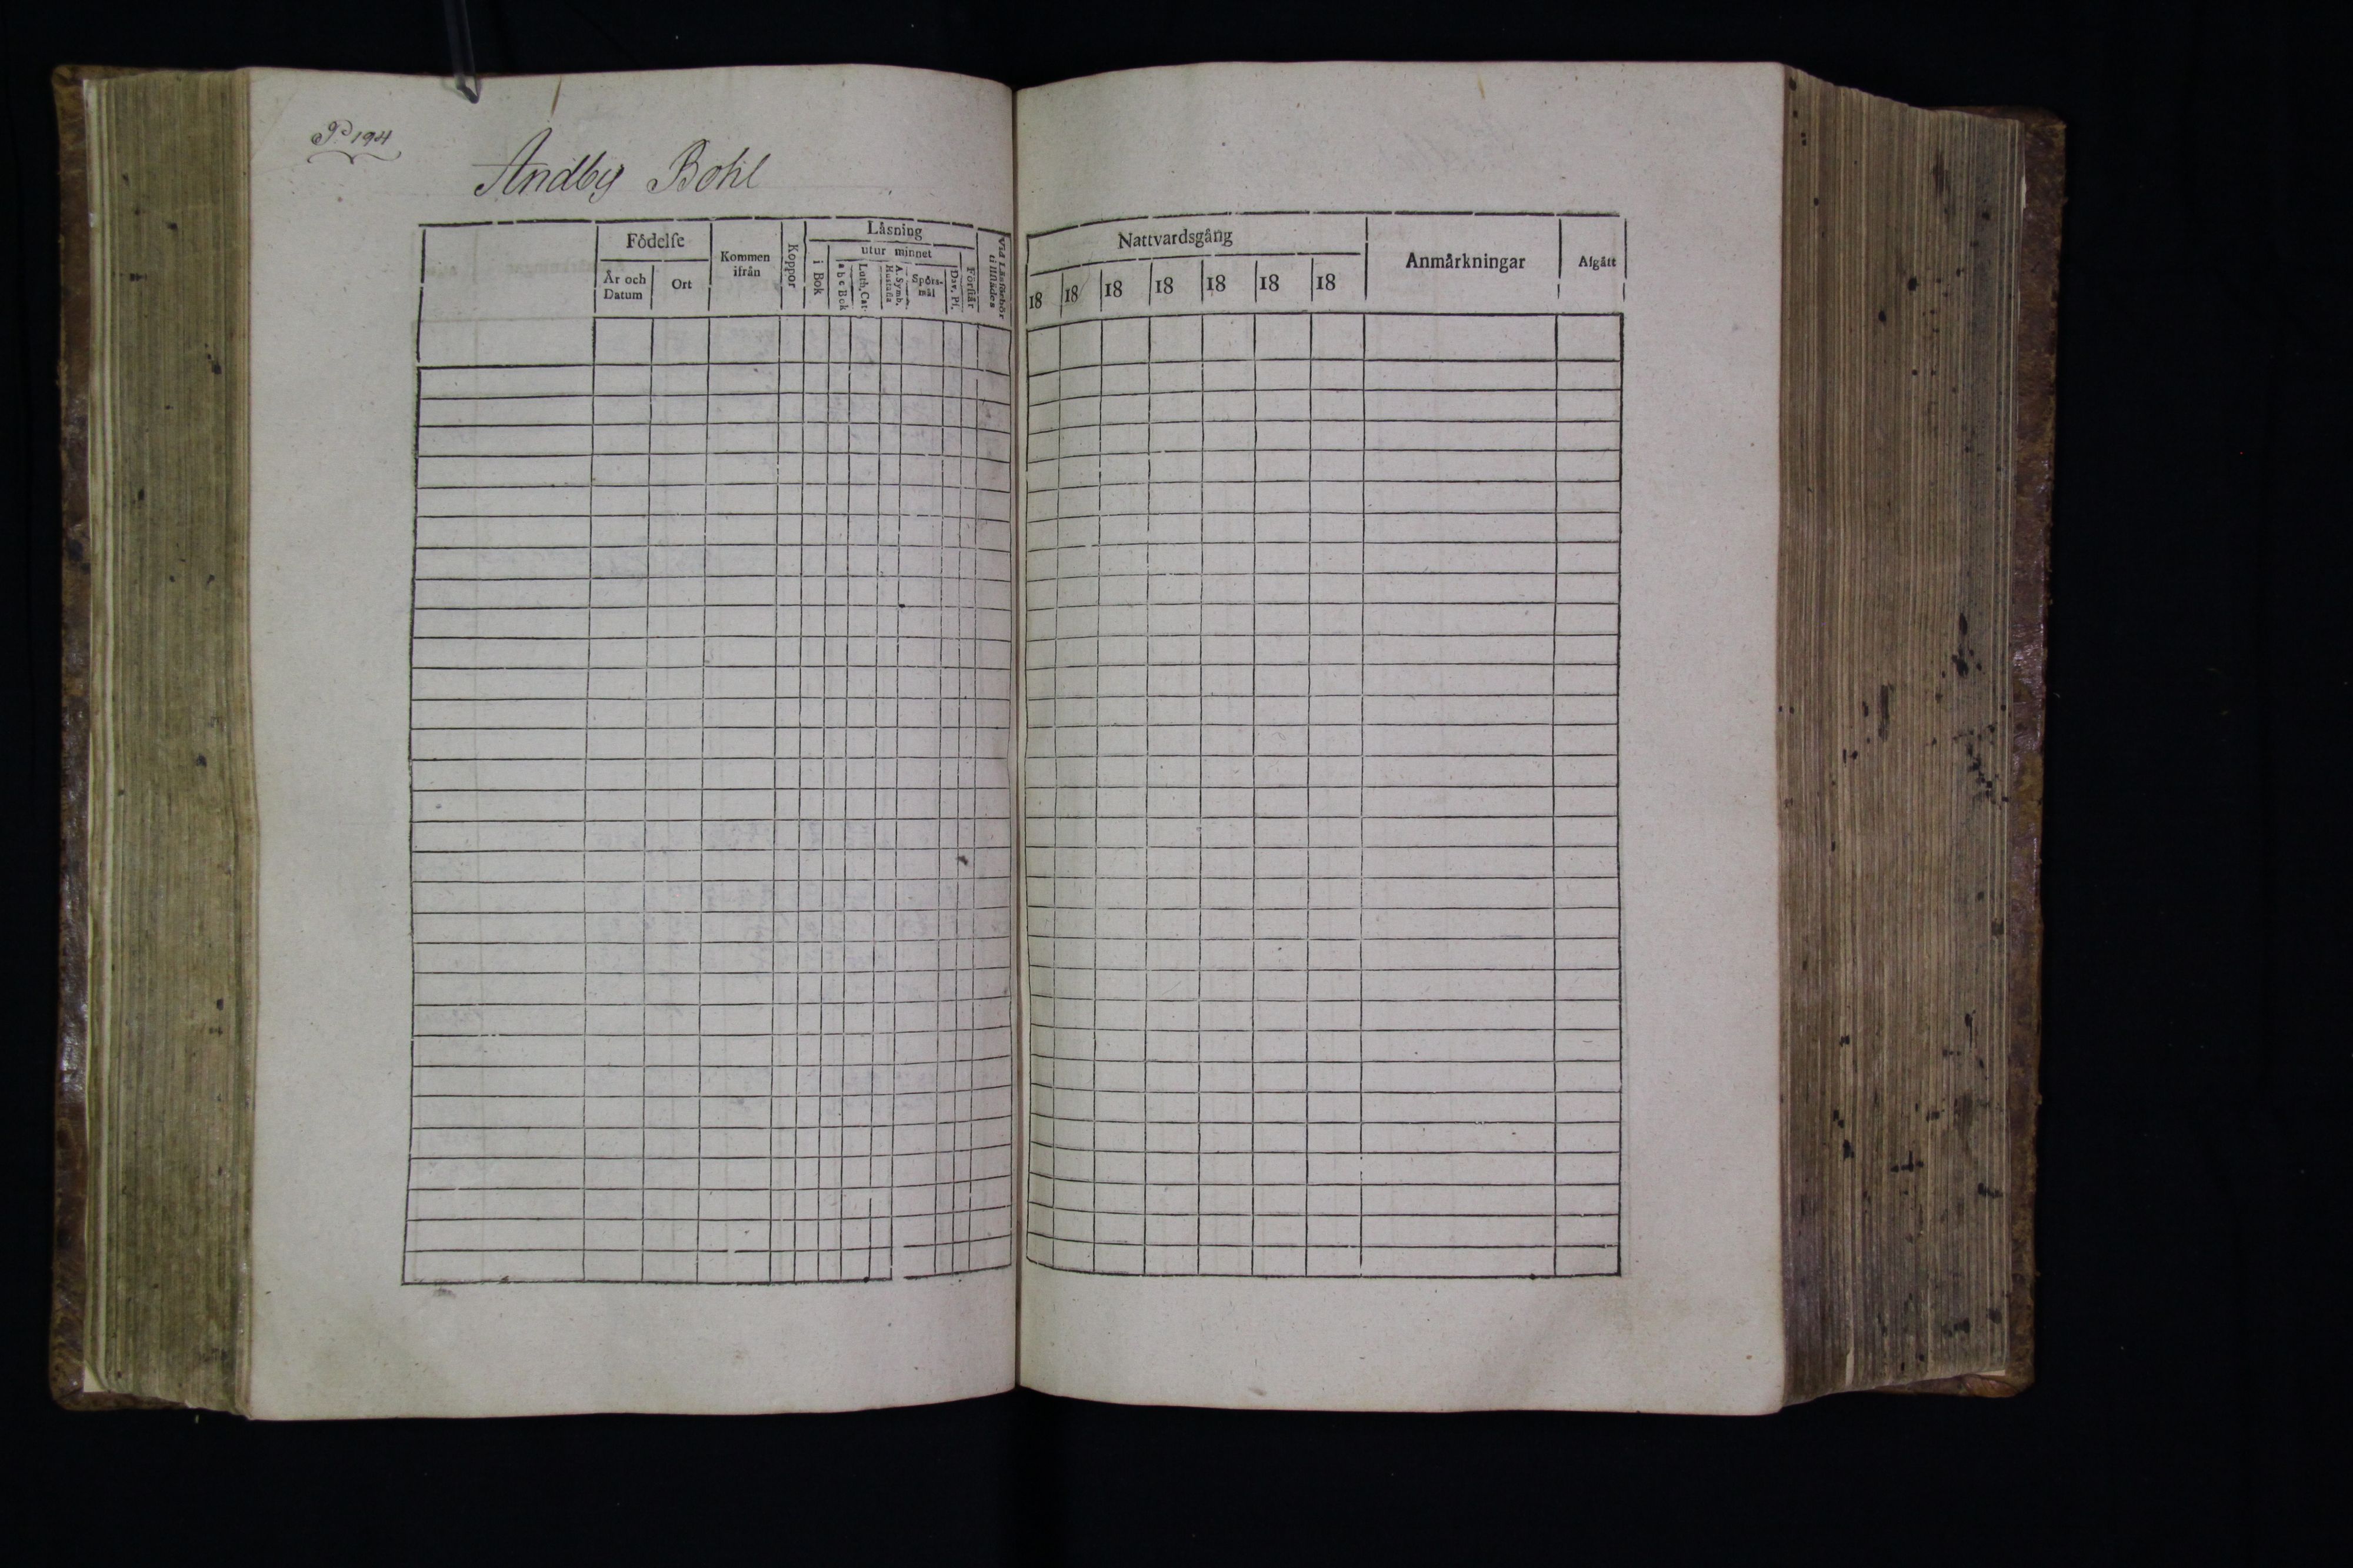 P. 194
Andby Bohl
Födelse
År och Datum
Ort
Kommen ifrån
Koppor
Läsning
i Bok
utur minnet
a b c Bok
Luth. Cat.
A. Symb. Hustafla
Spörs-mål
Dav. Ps.
Förstår
Vid Läsförhör tillstädes
Nattvardsgång
18 18 18 18 18 18 18
Anmärkningar
Afgått